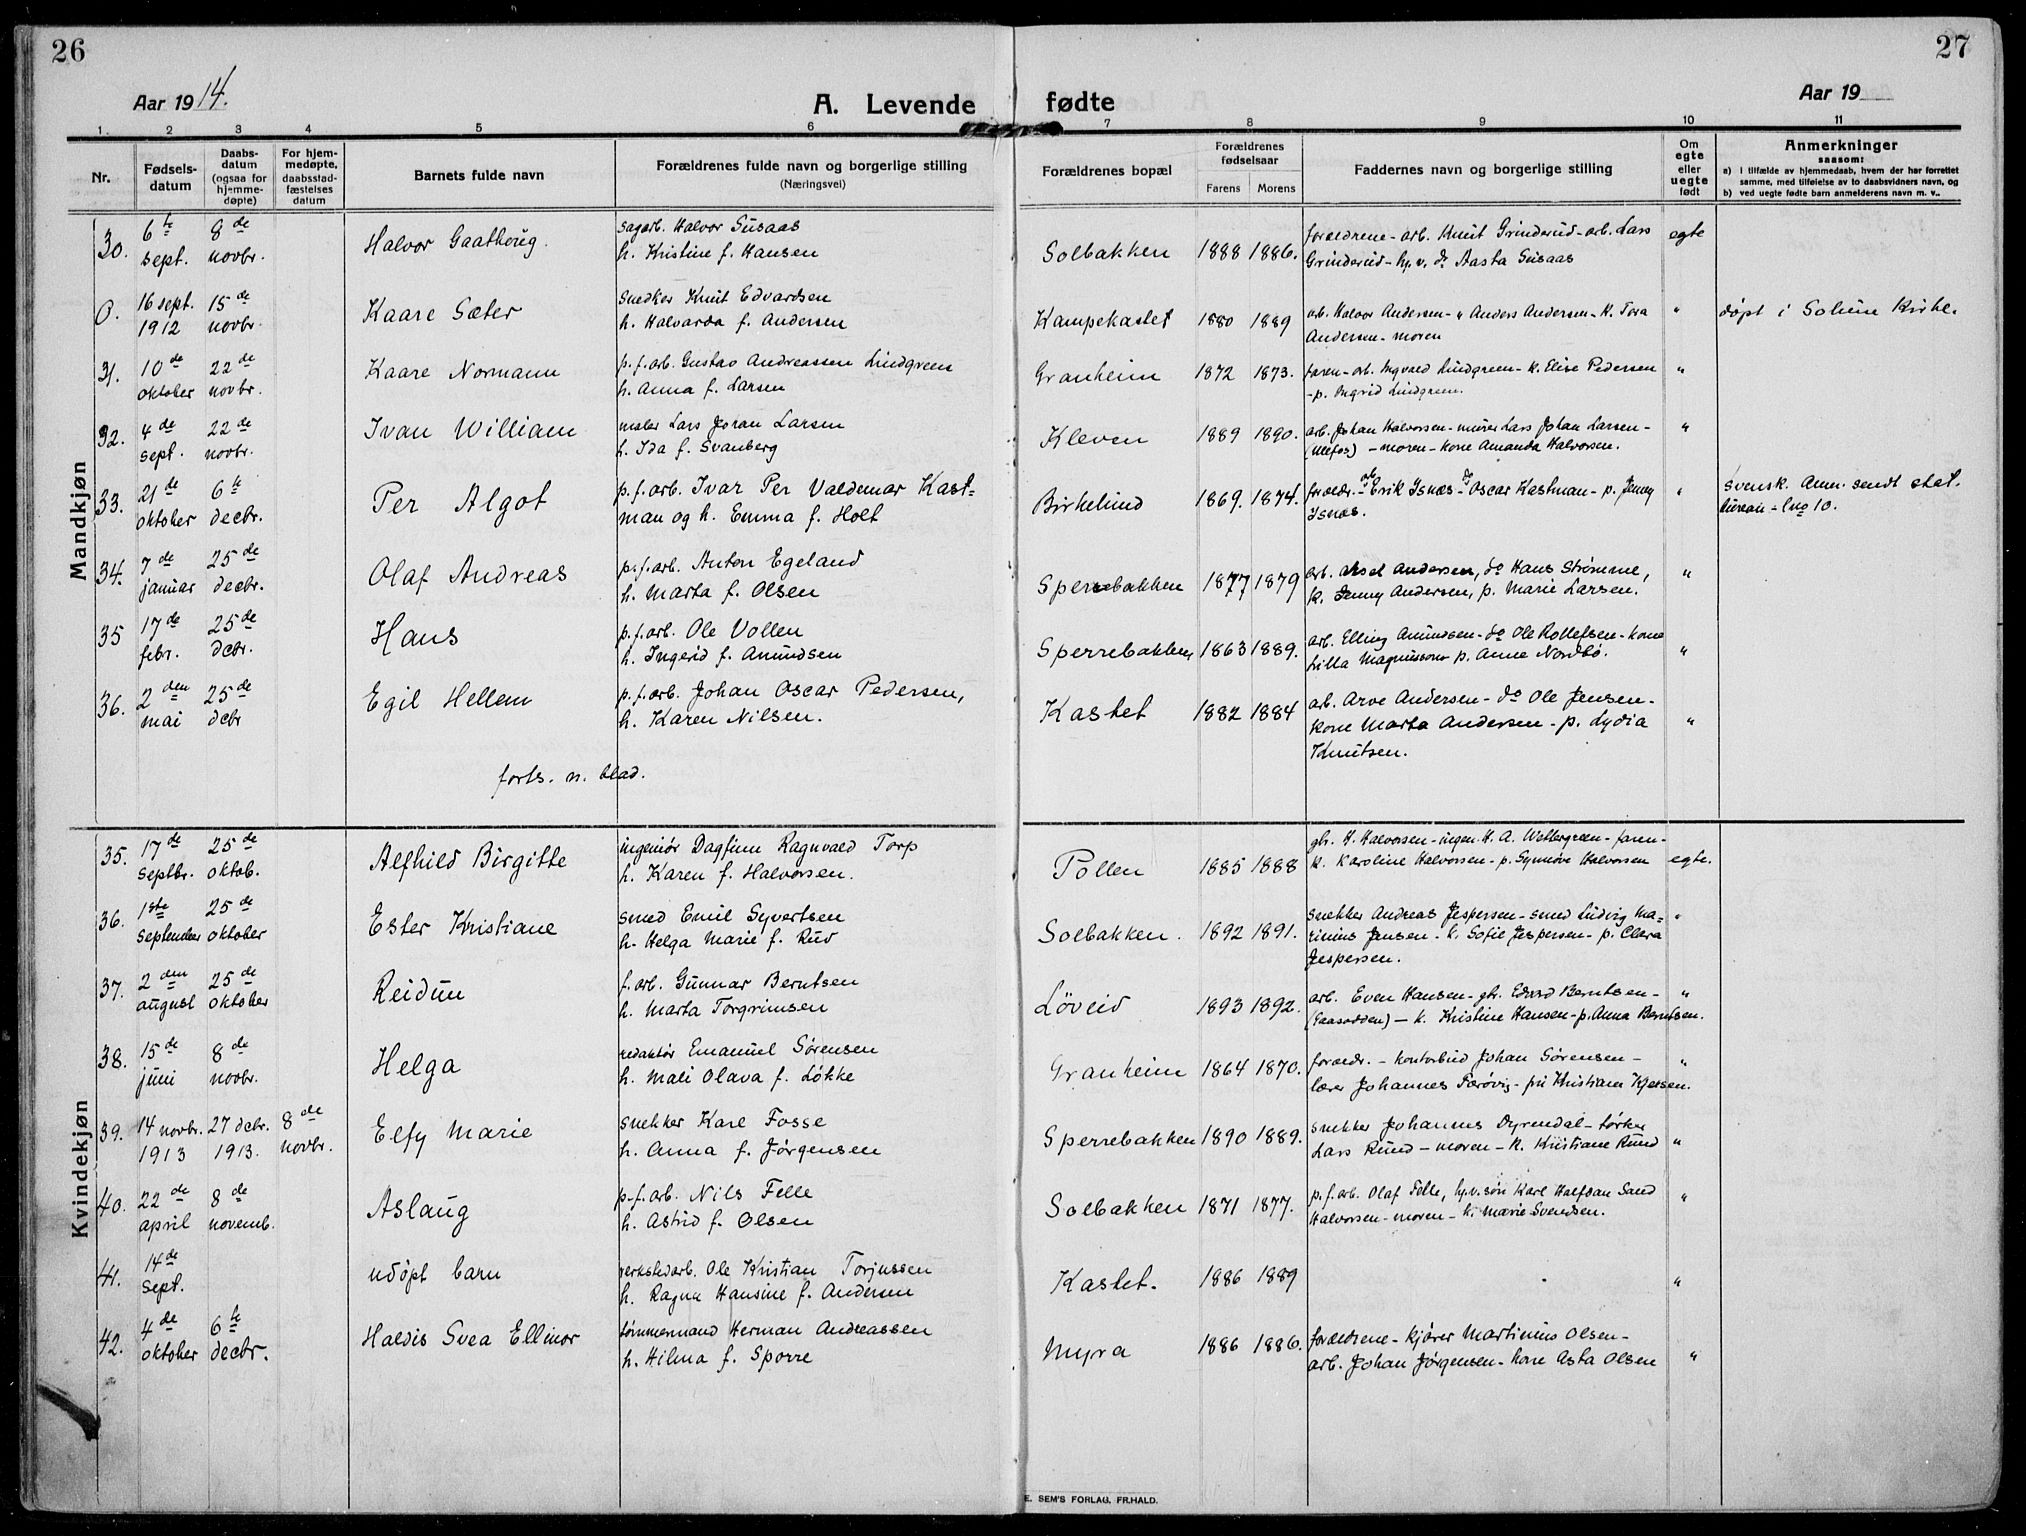 26
27
Aar 1914.
A. Levende fødte
Aar 19
1. 2 3 4 5 6 7 8 9 10 11
Nr.
Fødsels-datum
Daabs-datum (ogsaa for hjemme-døpte)
For hjem-medøpte, daabsstad-fæstelses datum
Barnets fulde navn
Forældrenes fulde navn og borgerlige stilling
(Næringsvei)
Forældrenes bopæl
Forældrenes fødselsaar
Farens Morens
Faddernes navn og borgerlige stilling
Om egte eller uegte født
Anmerkninger
saasom:
a) I tilfælde av hjemmedaab, hvem der har forrettet samme, med tilføielse av to daabsvidners navn, og
b) ved uegte fødte barn anmelderens navn m. v..
Mandkjøn
30. 6te sept. 8de novbr. Halvor Gaathoug. sagarb. Halvor Susaas
h. Kristine f. Hansen Solbakken 1888 1886. forældrene - arb. Knut Grinderud - arb. Lars
Grinderud - hp. v. do Aasta Susaas egte
0. 16 sept. 1912 15de novbr. Kaare Sæter snedker Knut Edvardsen
h. Halvarda f. Andersen Kampekastet 1880 1889 arb. Halvor Andersen - " Anders Andersen - k. Tora
Andersen - moren " døpt i Solum Kirke.
31. 10de oktober 22de novbr. Kaare Normann p.f.arb. Gustav Andreassen Lindgreen
h. Anna f. Larsen Granheim 1872 1873. faren - arb. Ingvald Lindgreen - k. Elise Pedersen
- p. Ingrid Lindgreen. "
32. 4de sept. 22de novbr. Ivan William maler Lars Johan Larsen
h. Ida f. Svanberg Kleven 1889 1890. arb. Johan Halvorsen - murer Lars Johan Larsen -
(Ulefos) - moren - kone Amanda Halvorsen. "
33. 21de oktober 6te decbr. Per Algot p.f.arb. Ivar Per Valdemar Kast=
man og h. Emma f. Holt Birkelund 1869. 1874. foraldr. - arb. Erik Isnæs - do Oscar Kastman - p. Jenny
Isnæs. " svensk. Anm. sendt stat.
bureau - lno 10.
34. 7de januar 25de decbr. Olaf Andreas p.f.arb. Anton Egeland
h. Marta f. Olsen Sperrebakken 1877 1879 arb. Aksel Andersen, do Hans Strømme,
k. Jenny Andersen, p. Marie Larsen. "
35 17de febr. 25de dcbr. Hans p.f.arb. Ole Vollen
h. Ingerid f. Amundsen Sperrebakken 1863 1889. arb. Elling Amundsen - do Ole Rollefsen - kone
Lilla Magnusson p. Anne Nordbø. "
36. 2den mai 25de dcbr Egil Hellem p.f.arb. Johan Oscar Pedersen,
h. Karen Nilsen. Kastet 1882 1884 arb. Arve Andersen - do Ole Jensen -
kone Marta Andersen - p. Lydia
Knutsen. "
forts. n. blad.
Kvindekjøn
35. 17de septbr. 25de oktob. Alfhild Birgitte ingeniør Dagfinn Ragnvald Torp
h. Karen f. Halvorsen. Pollen 1885 1888 gbr. H. Halvorsen - ingen. H. A. Wettergreen - faren -
k. Karoline Halvorsen - p. Synnøve Halvorsen egte.
36. 1ste September 25de oktober Ester Kristiane smed Emil Syvertsen
h. Helga Marie f. Rud Solbakken. 1892 1891. snekker Andreas Jespersen - smed Ludvig Ma=
rinius Jansen - k. Sofie Jespersen - p. Clara
Jespersen. "
37. 2den august 25de oktober Reidun f. arb. Gunnar Berntsen
h. Marta Torgrimsen Løveid 1893 1892. arb. Even Hansen - gbr. Edvard Berntsen -
(Gaasodden) - k. Kristine Hansen - p. Anna Berntsen. "
38. 15de juni 8de novbr. Helga redaktør Emanuel Sørensen
h. Mali Olava f. Løkke Granheim 1864 1870. foraldr. - kontorbud Johan Sørensen -
lærer Johannes Farøvig - frk Kristiane Kjersen. "
39. 14 novbr. 1913 27 dcbr. 1913. 8de novbr. Elfy Marie snekker Karl Fosse
h. Anna f. Jørgensen Sperrebakken 1890 1889. snekker Johannes Dyrendal - tørker
Lars Rund - moren - k. Kristiane Rund "
40. 22de april 8de novemb. Aslaug p.f.arb. Nils Felle
h. Astrid f. Olsen Solbakken 1871 1877. p.f.arb. Olaf Felle, hp.v.søn Karl Halfdan Sand
Halvorsen - moren - k. Marie Svendsen. "
41. 14de sept. udøpt barn verkstedarb. Ole Kristian Torjussen
h. Ragna Hansine f. Andersen Kastet. 1886 1889 "
42. 4de oktober 6te decbr. Haldis Svea Ellinor tømmermand Herman Andreassen
h. Hilma f. Sporre Myra 1886 1886. forældrene - kjører Martinius Olsen -
arb. Johan Jørgensen - kone Asta Olsen "
E. SEM'S FORLAG, FR.HALD.